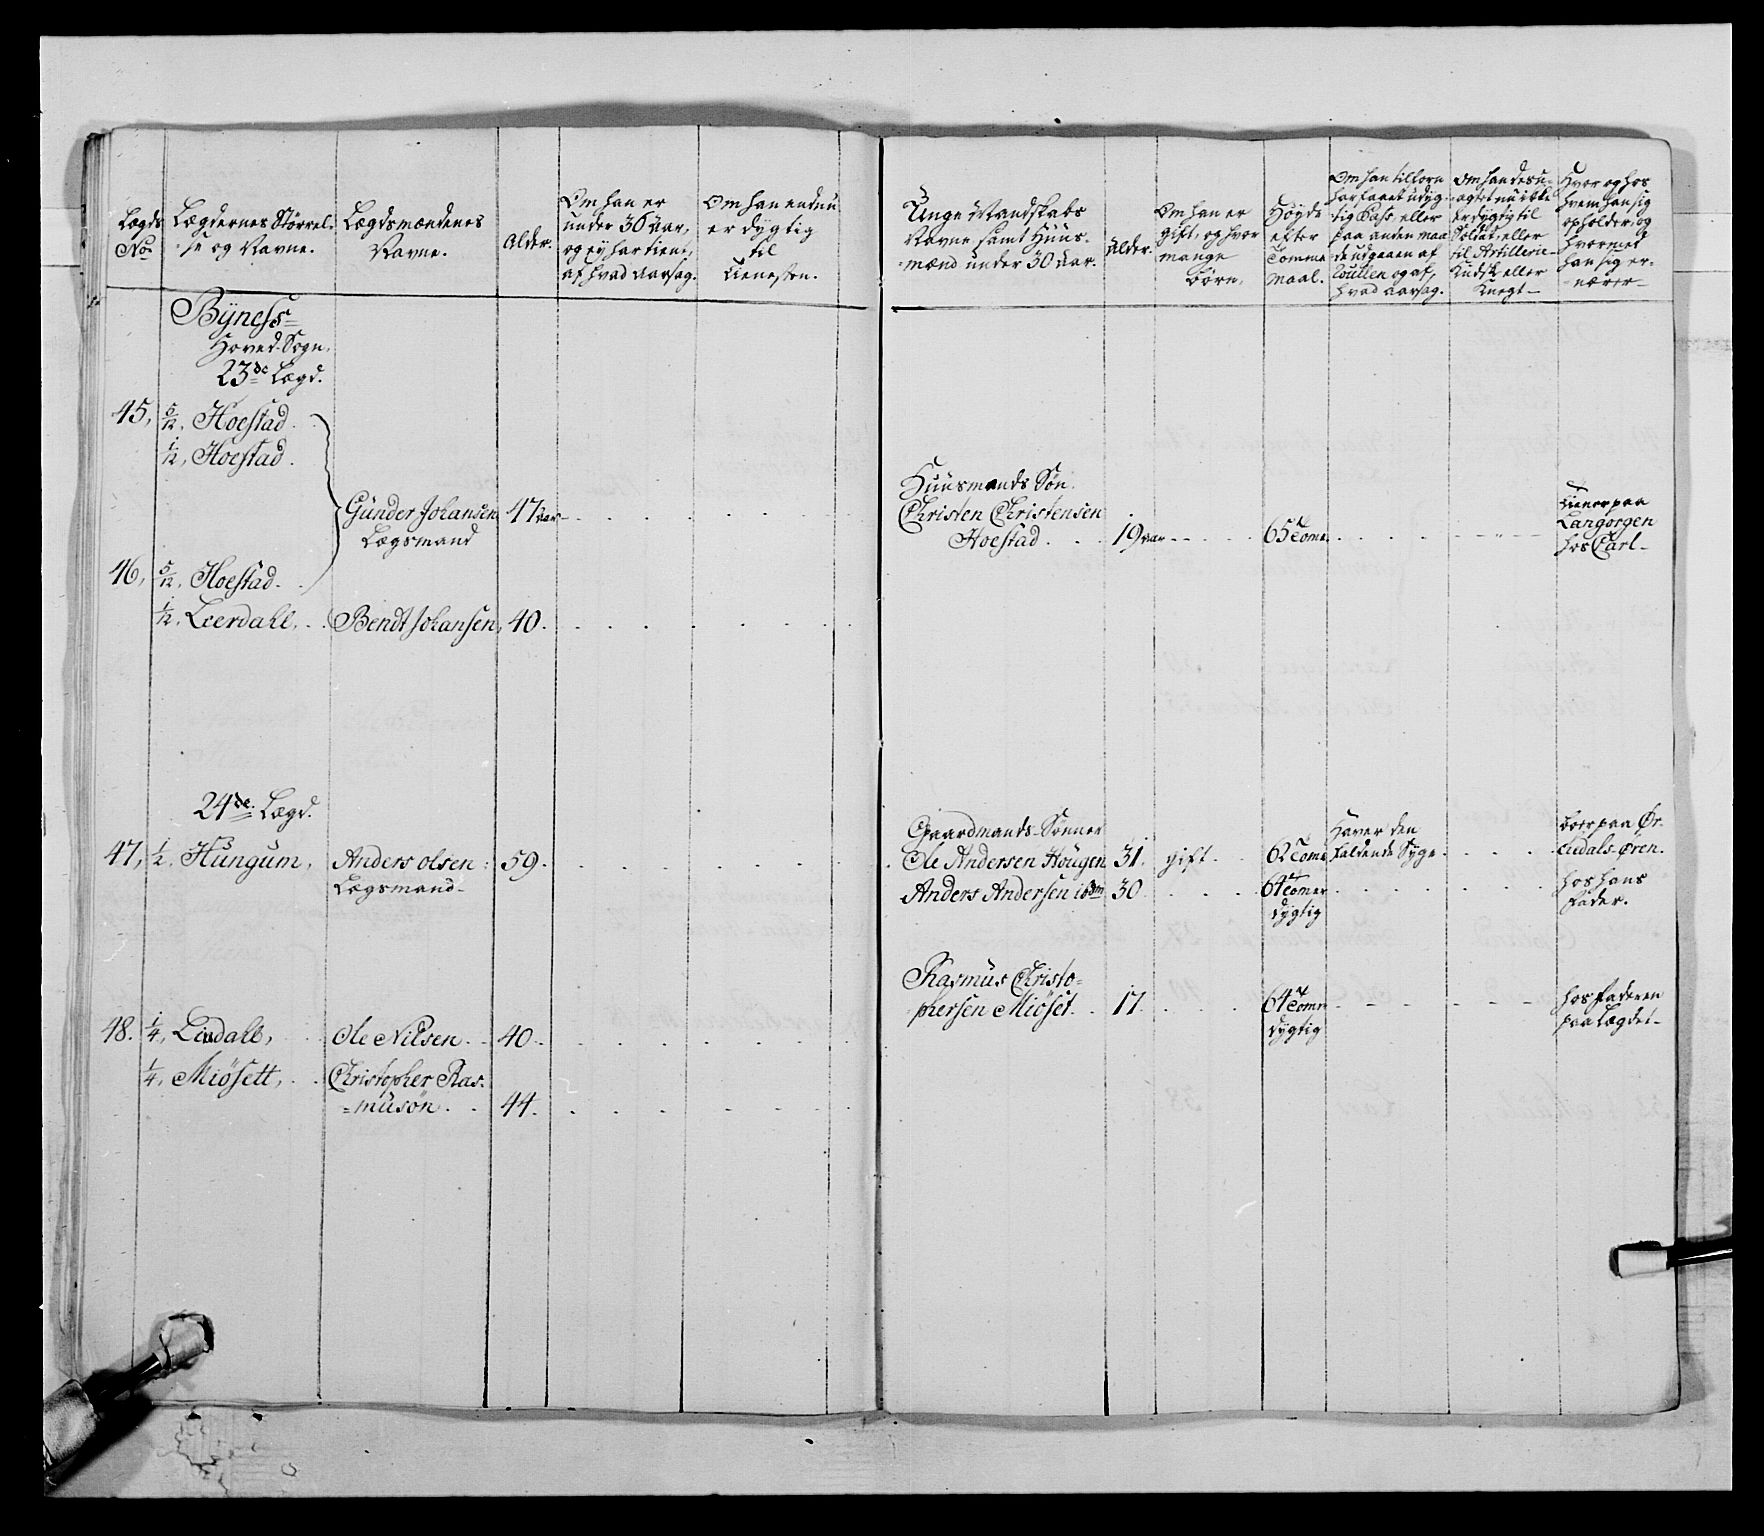 Lægds
No.
Lægdernes Størrel-
se og Navne.
Lægdsmændenes
Navne.
Alder.
Om han er
under 36 Aar,
og ey har tient,
af hvad Aarsag.
Om han endnu
er dygtig
til
Tienesten.
Unge Mandskabs
Navne samt Huus-
mænd under 30 Aar.
Alder.
Om han er
gift, og hvor
mange
børn.
Høyde
efter
Tomme
maal.
Om han tilforn
har faaet udyg-
tig Pass, eller
paa anden maa
de udgaaen af
Rullen og af,
hvad Aarsag.
Om han desu-
agtet nu ikke
er dygtig til
Soldat, eller
til Artillerie-
Kudsk eller
Knegt
Hvor og hos
hvem han sig
opholder, og
hvormed
han sig er-
nærer
Bÿness
Hoved-Sogn.
23de Lægd.
45, 5/12, Hoestad
1/12, Hoestad.
Günder Johansen 47 aar
Lægsmand
Huusmands Søn.
Christen Christensen
Hoestad 19 aar 65 Tome
tiener paa
Langorgen
hos Carl
46, 5/12, Hoestad
1/12, Leerdahl, Bendt Johansen, 40.
24de Lægd.
47, 1/2, Hungum, Anders olsen 59.
Lægsmand
Gaardmands-Sønner
Ole Andersen Hougen 31. gift 62 Tome
Haver den
faldende Syge
boer paa Ør-
kedals-Øren.
Anders Andersen ibdm 30 64 Tomer
dygtig
hos hans
fader.
Rasmus Christo-
phersen Miöset 17. 64 Tomr
dygtig
hos faderen
paa Lægdet
48. 1/4, Liedall, Ole Nilsen 40
1/4, Miösett, Christopher Ras-
musön 44.